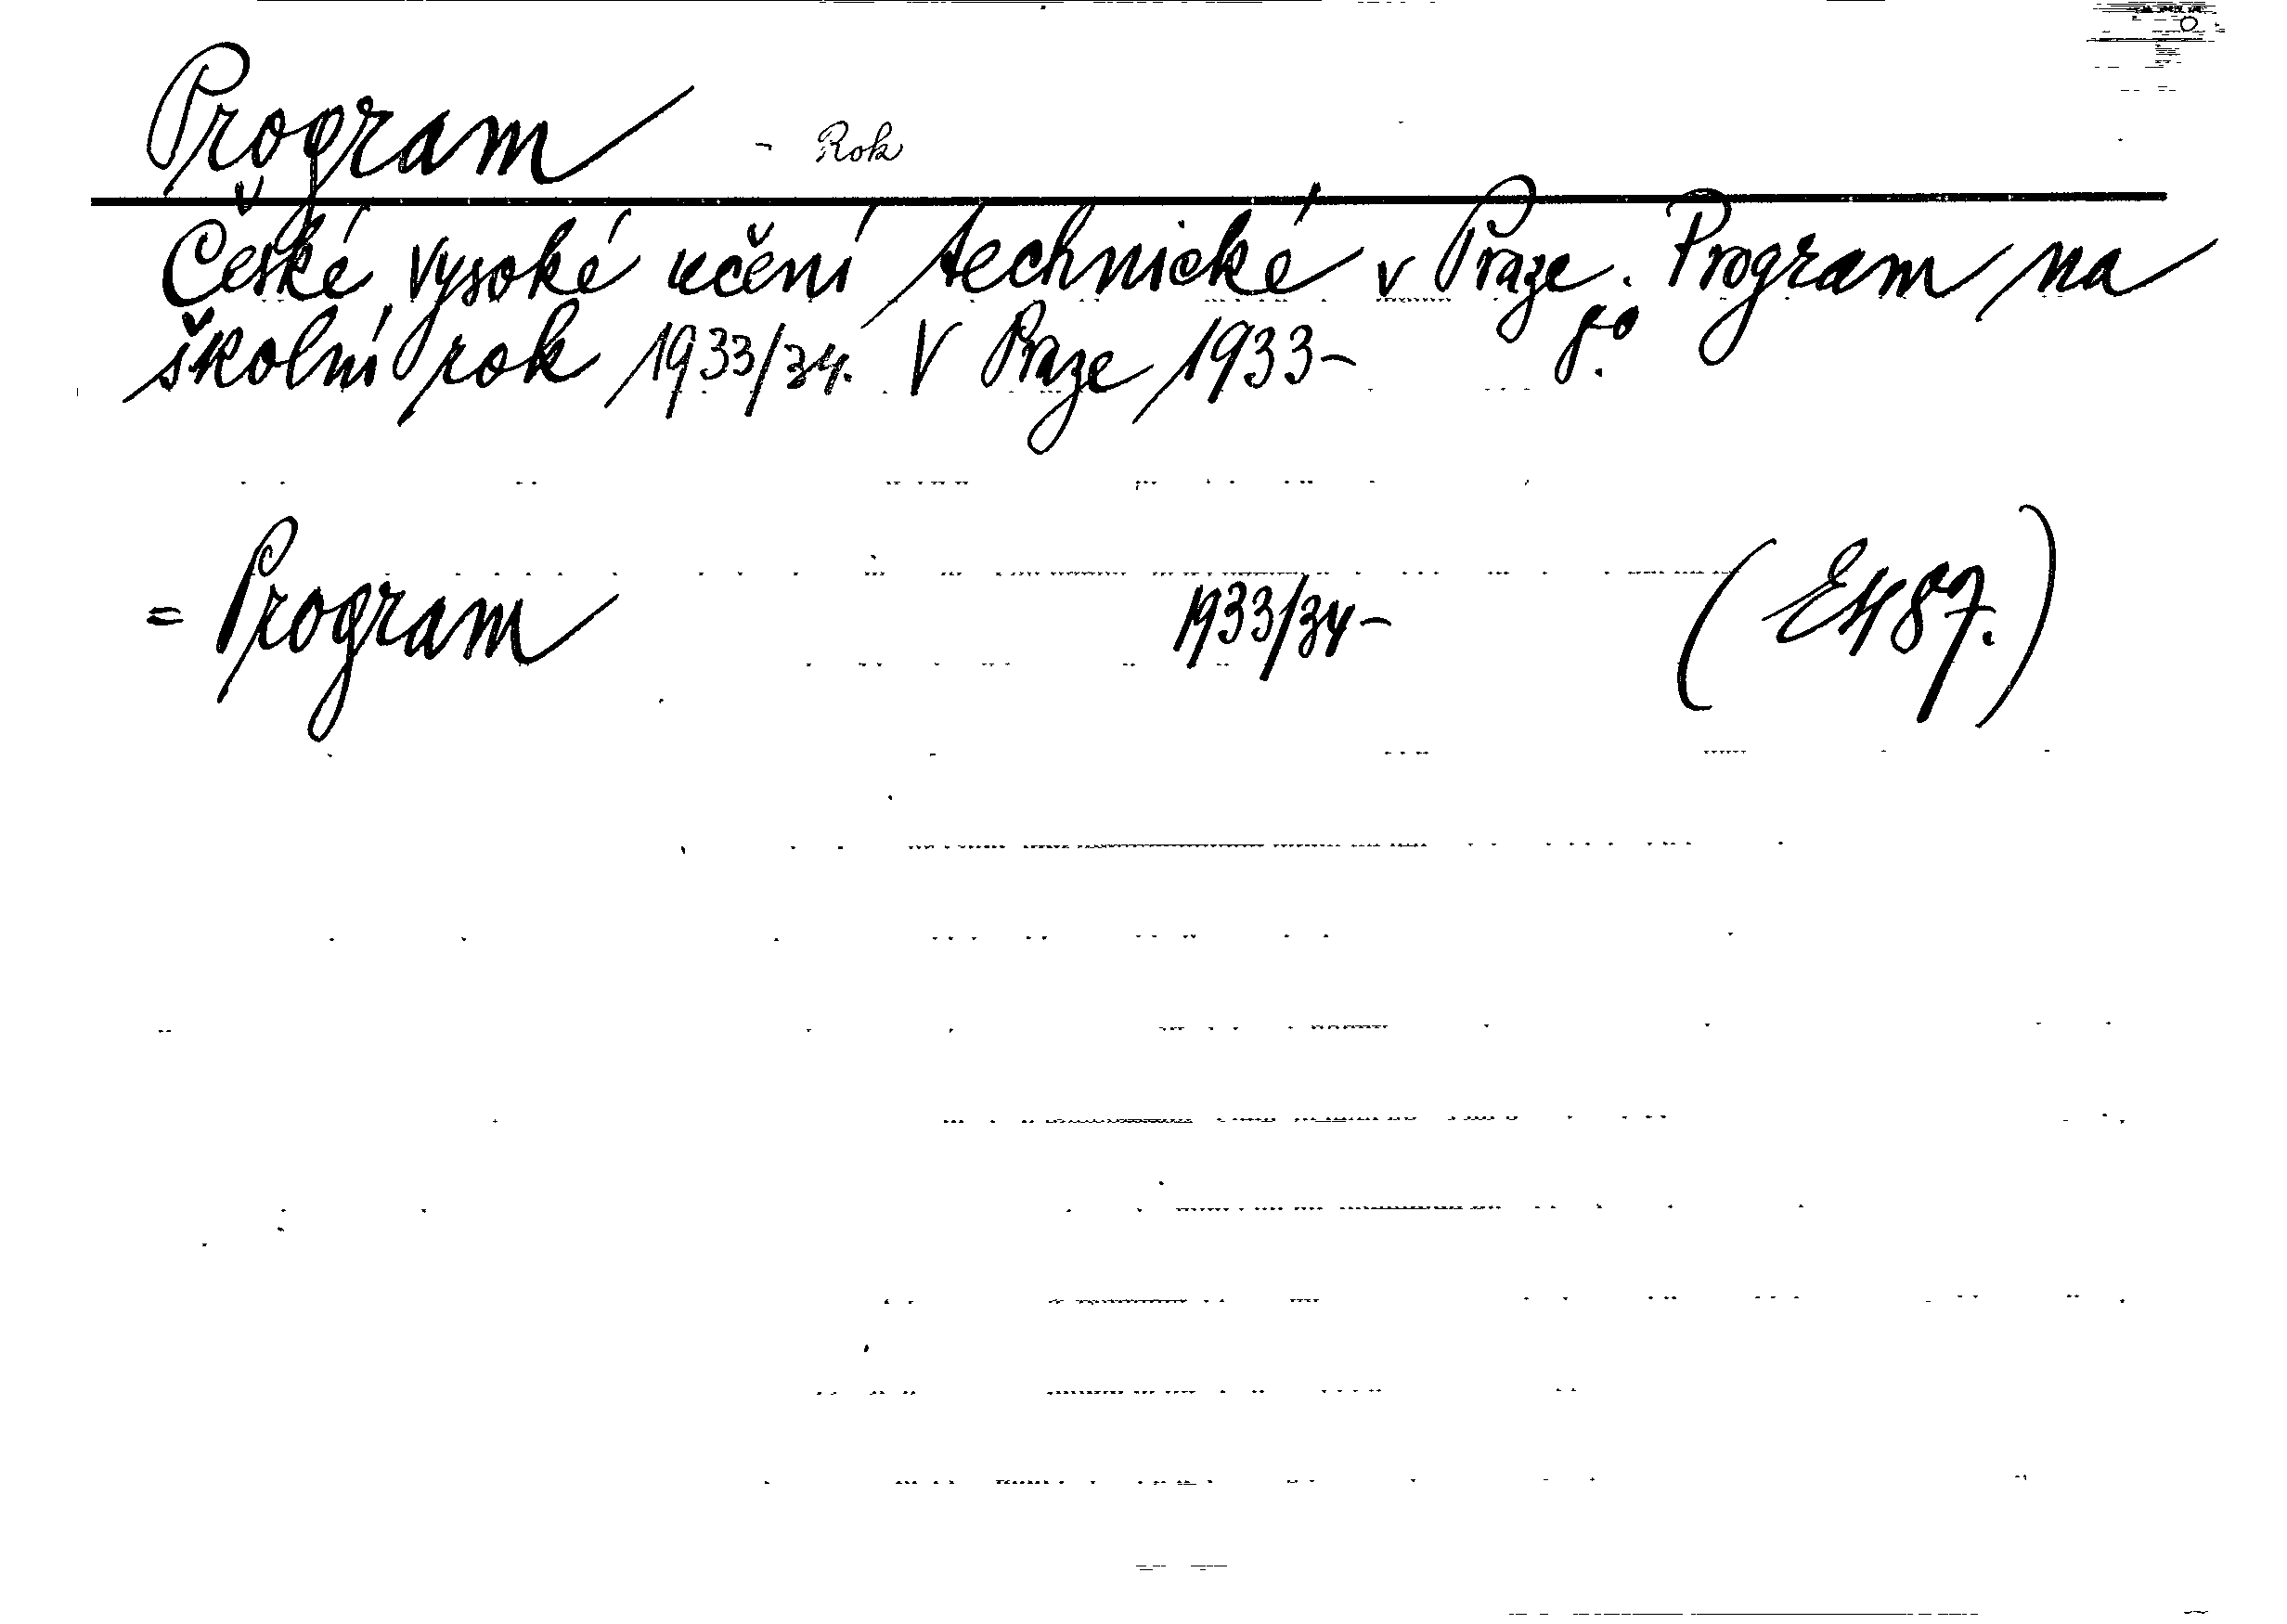 Program - Rok
České vysoké učení technické v Praze. Program na
školní rok 1933/34. V Praze 1933- 8º.
= Program 1933/34- (E 487.)